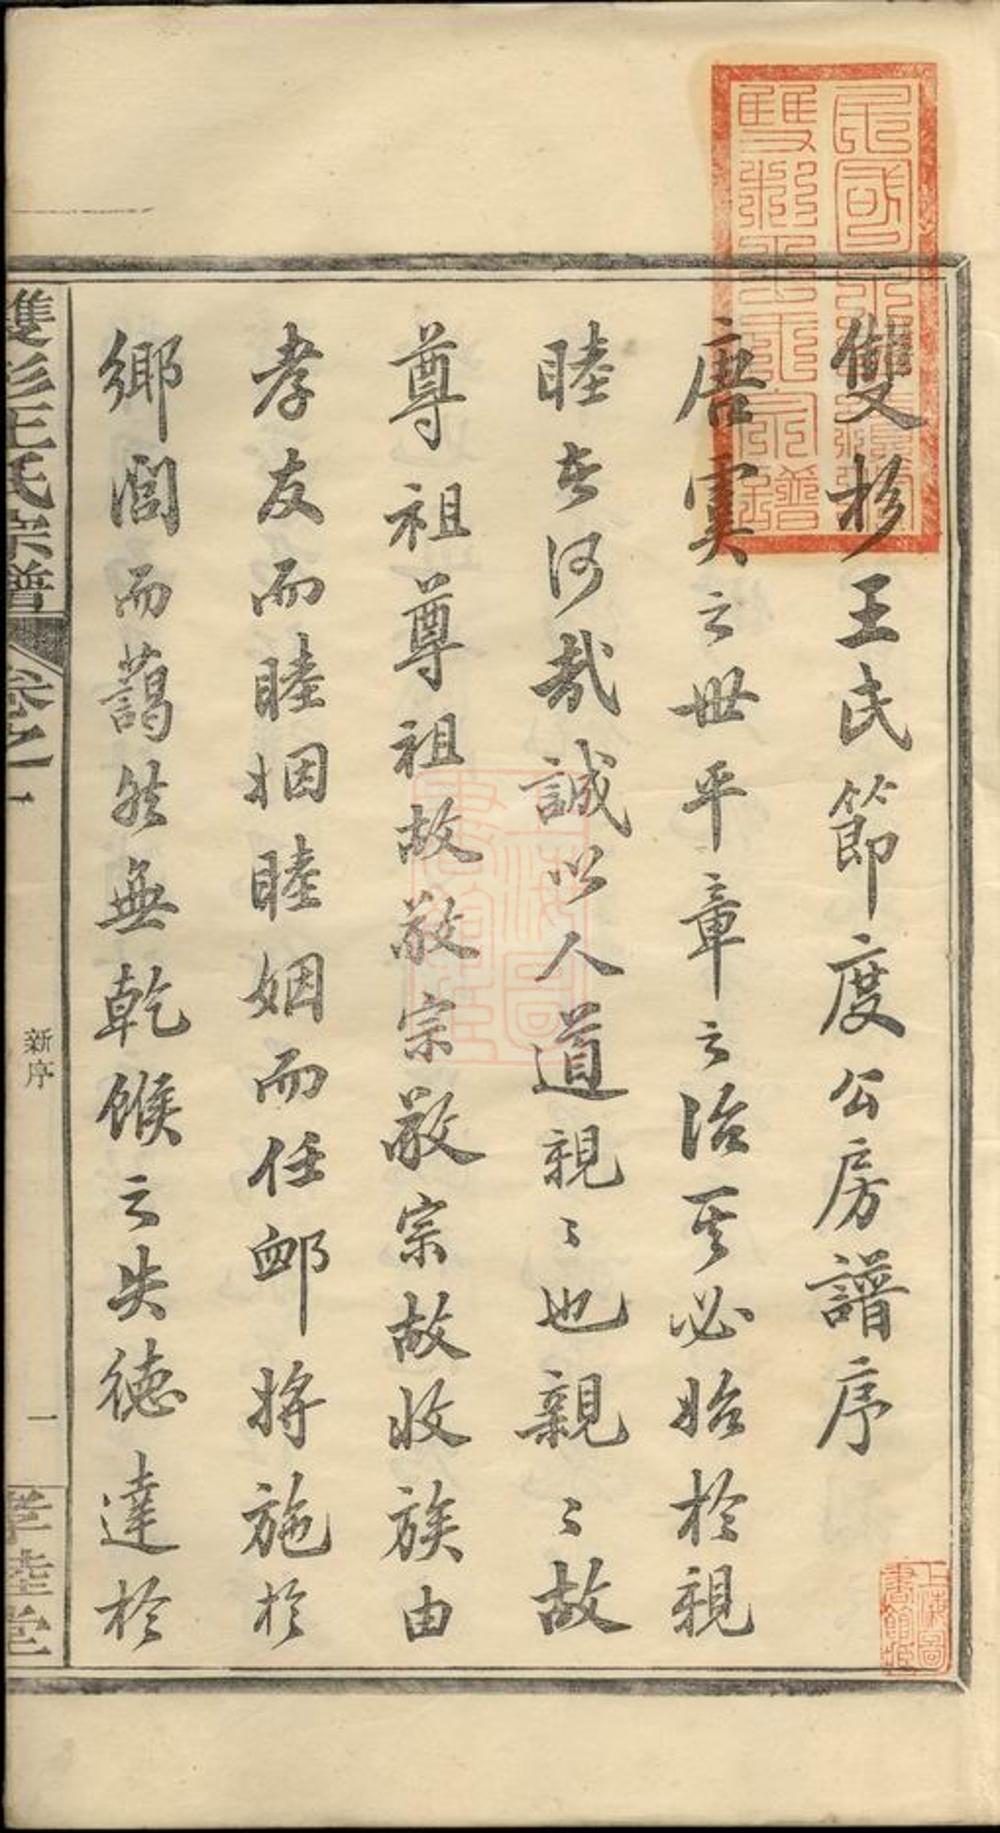 雙杉王氏節度公房譜序
唐虞之世平章之治其必始於親
睦者何哉誠以人道親〻也親〻故
尊祖尊祖故敬宗敬宗故收族由
孝友而睦婣睦姻而任卹將施於
鄉閭而藹然無乾餱之失德達於
雙杉王氏宗譜
卷之一
新序
一
孝睦堂
上海圖
書館藏